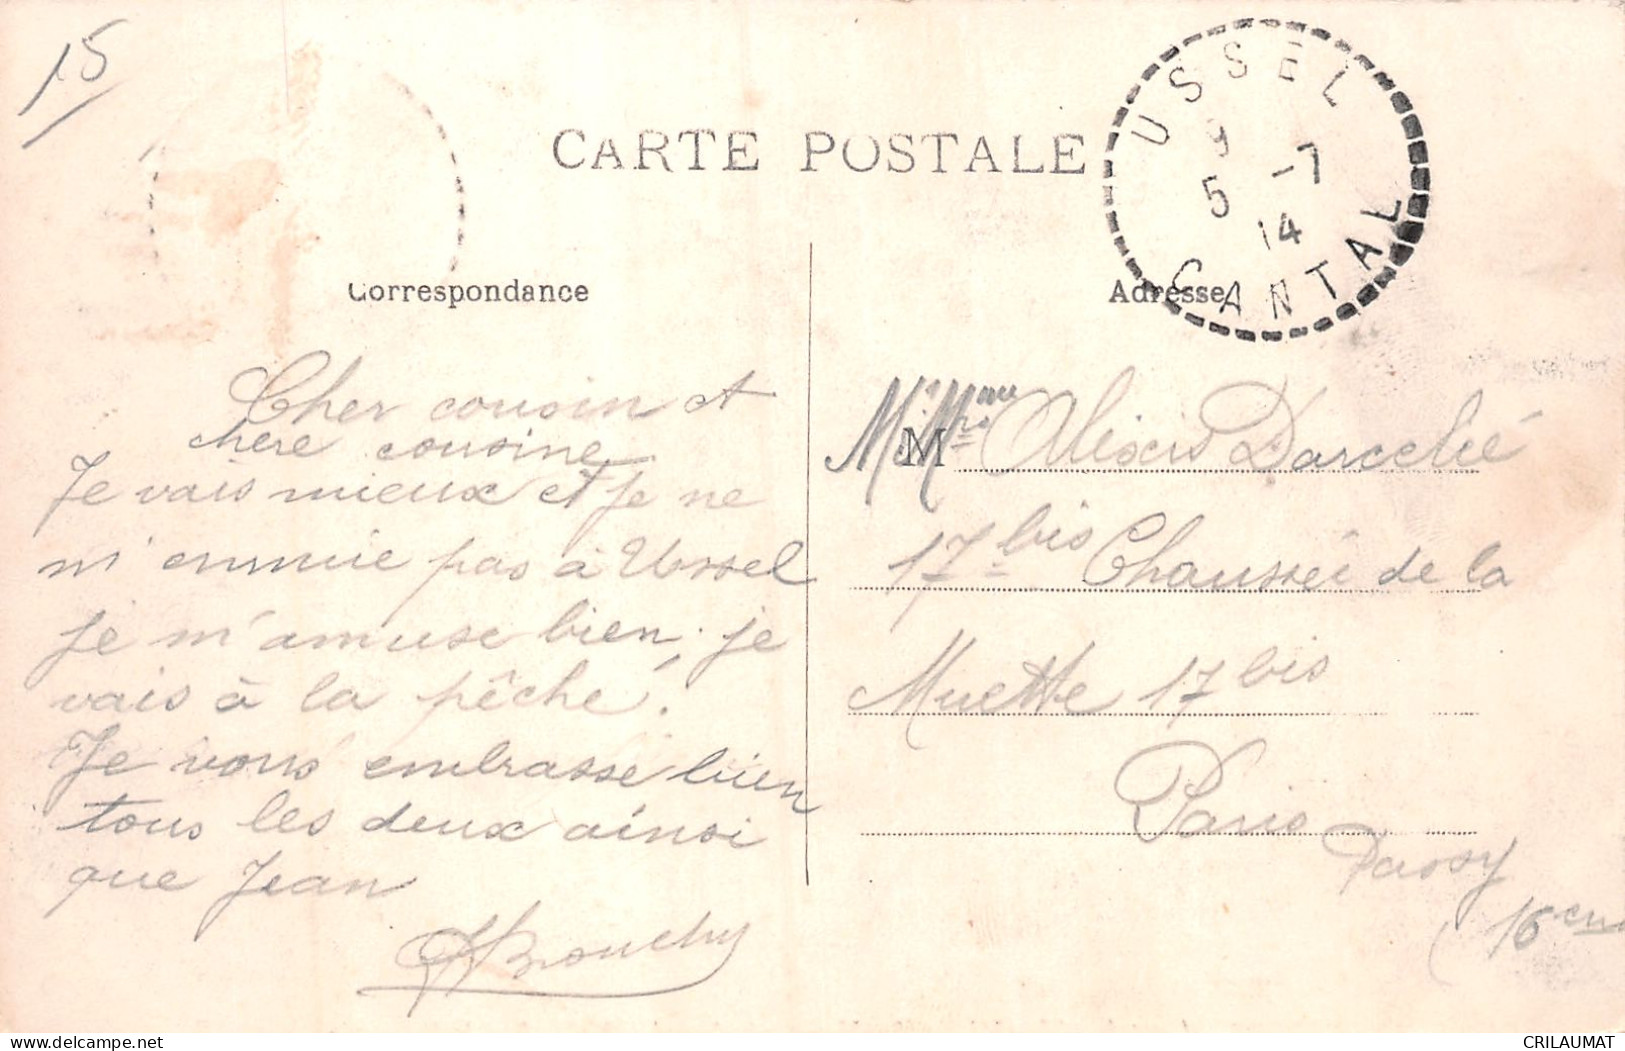 15
CARTE POSTALE
USSEL
9
5 -7
14
CANTAL
Correspondance
Adresse
Cher cousin et
chere cousine
Je vais mieux et je ne
m'ennuie pas à Ussel
je m'amuse bien, je
vais à la pêche.
Je vous embrasse bien
tous les deux ainsi
que Jean
M Mme Alexis Darcelié
17 bis Chaussée de la
Muette 17 bis
Paris
Passy
16 em
CRILAUMAT